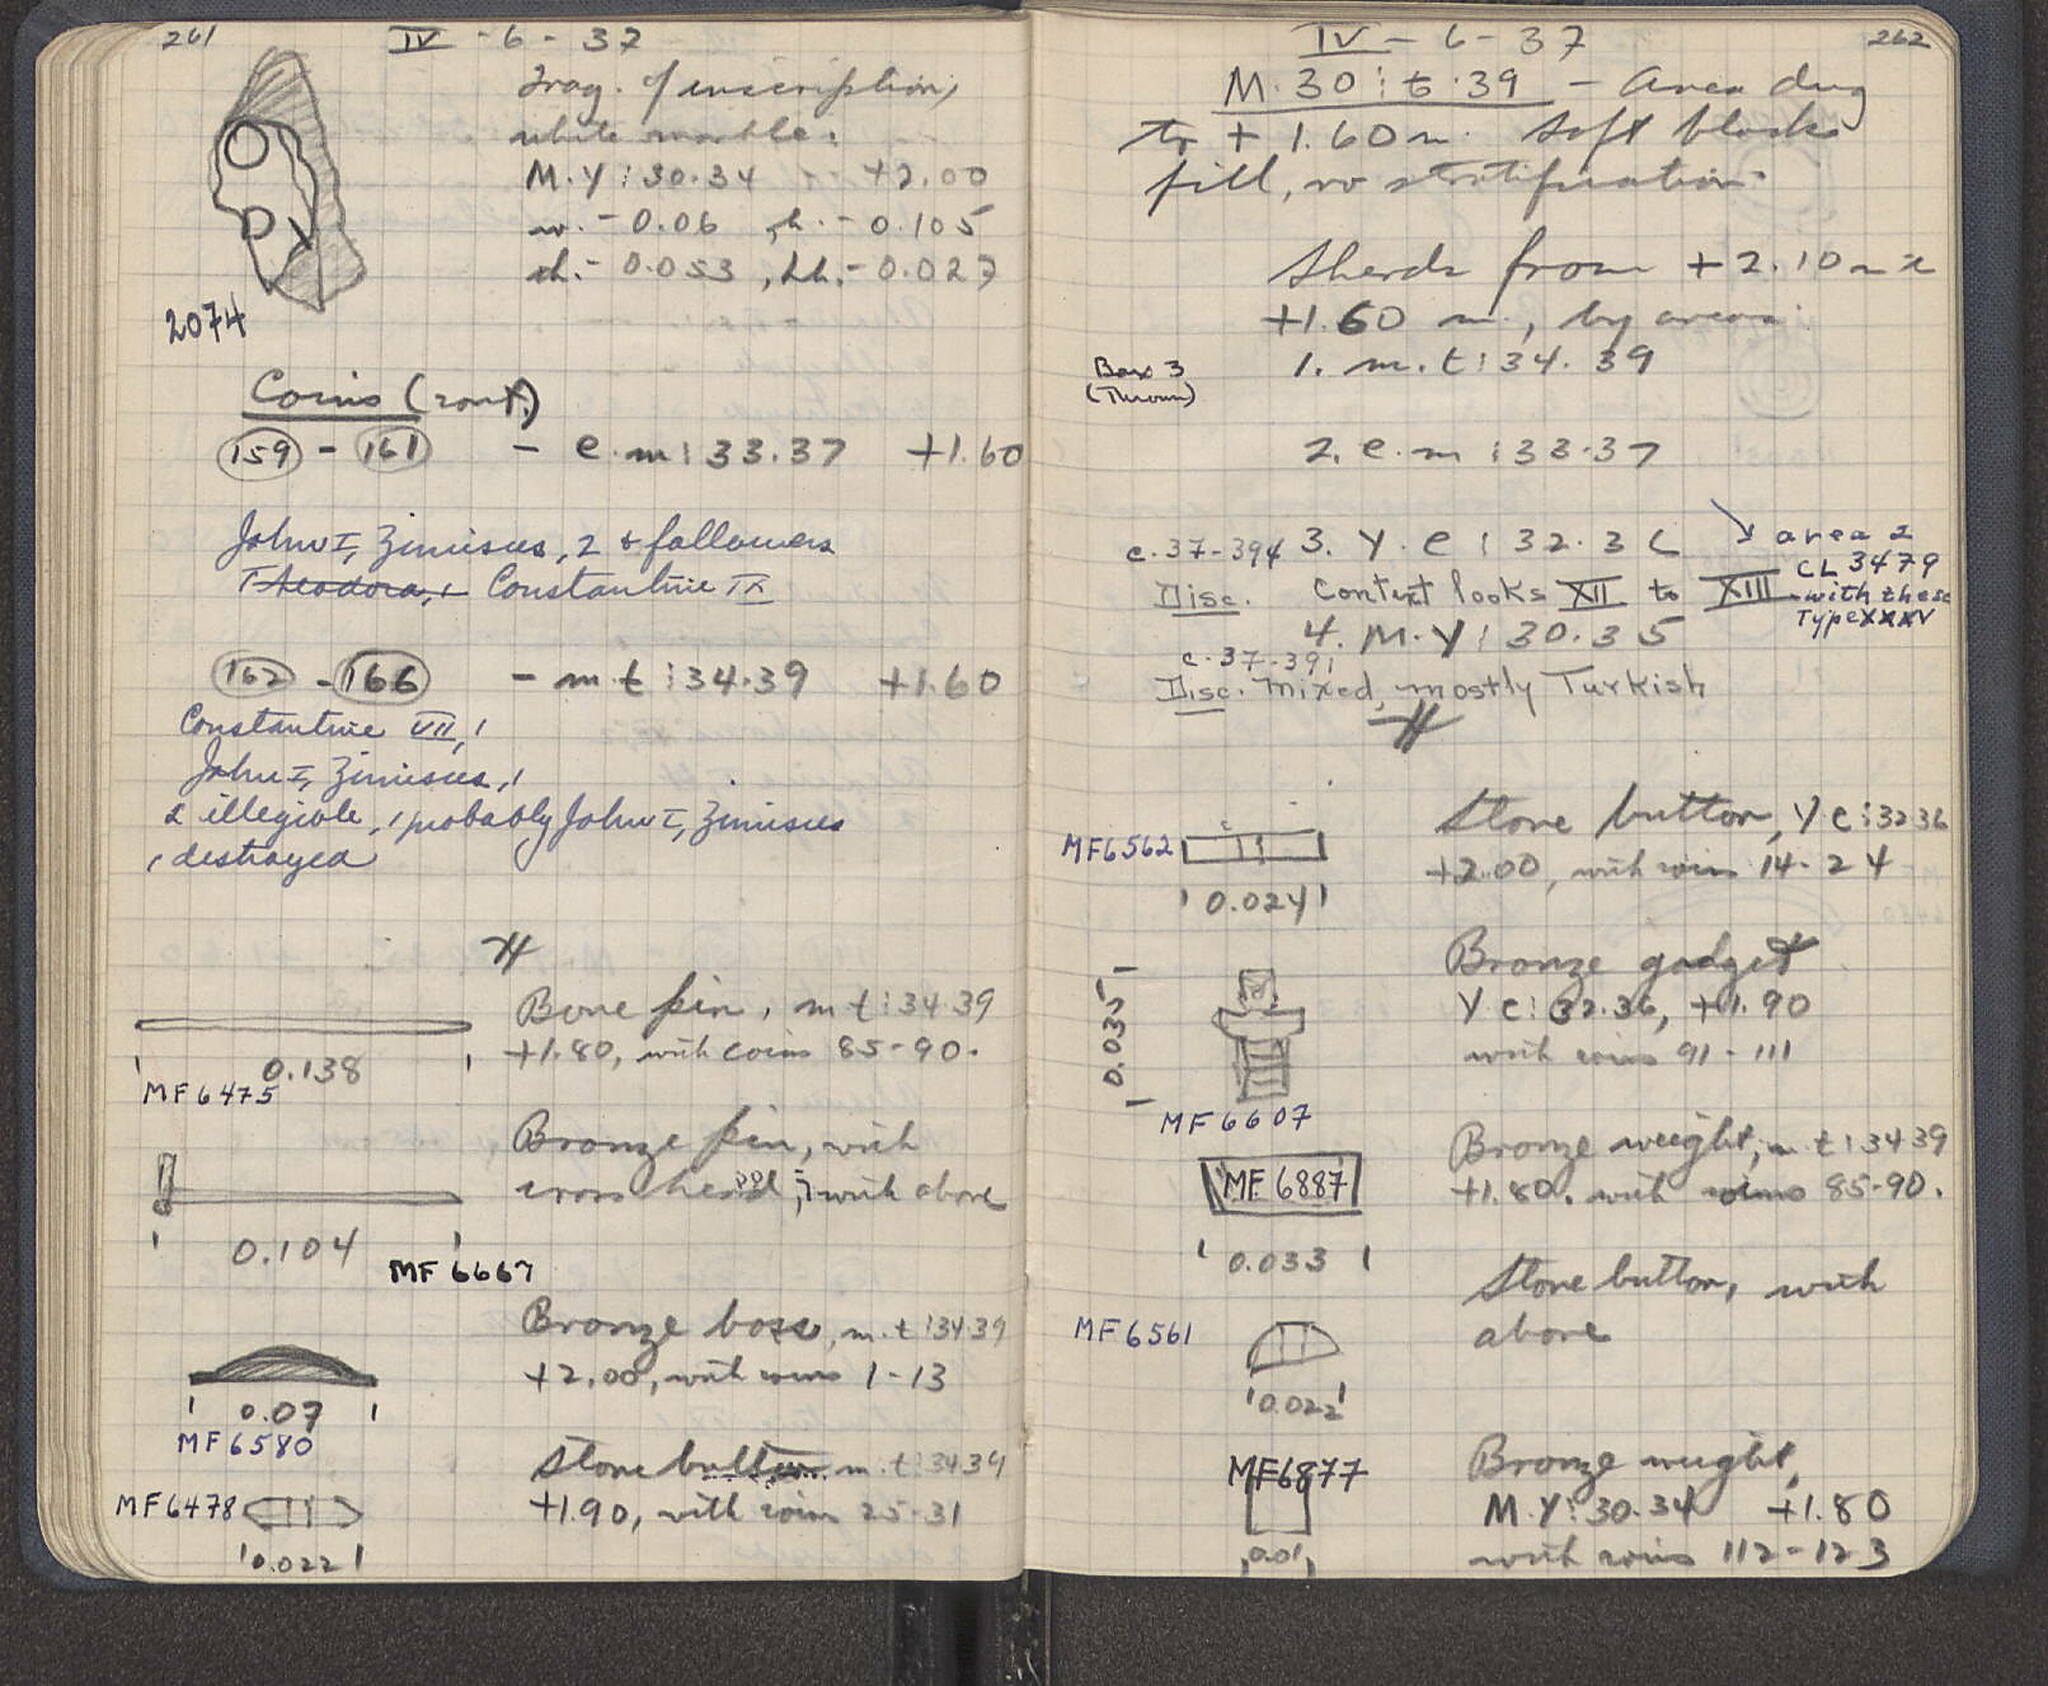 261
IV - 6 - 37
Frag. of inscription,
white marble:
M.Y : 30.34 +2.00
w. - 0.06 , h. - 0.105
th. - 0.053 , Lh. - 0.027
2074
Coins (cont.)
159 - 161 - e.m : 33.37 +1.60
John I, Zimisces, 2 & followers
Theodora, 1 Constantine IX
162 - 166 - m t : 34.39 +1.60
Constantine VII, 1
John I, Zimisces, 1
2 illegible, 1 probably John I, Zimisces
1 destroyed
Bone pin, m t : 34.39
+1.80, with coins 85-90.
0.138
MF 6475
Bronze pin, with
cross head ??, with above
0.104
MF 6667
Bronze boss, m.t : 34.39
+2.00, with coins 1-13
0.07
MF 6580
Stone button m.t : 34 39
+1.90, with coins 25-31
MF 6478
0.022
262
IV - 6 - 37
M.30 : t.39 - Area dug
to + 1.60 m. Soft black
fill, no stratification.
Sherds from +2.10 m
+1.60 m., by areas:
Box 3
(Thrown)
1. m.t : 34.39
2. e.m : 33.37
c.37-394 3. Y.e : 32.36
area 2
CL 3479
with these
Type XXXV
Disc. Context looks XII to XIII
4. M.Y : 30.35
c.37-391
Disc. Mixed, mostly Turkish
MF6562
Stone button, Y e : 32 36
+2.00, with coins 14-24
0.024
Bronze gadget
Y e : 32.36, +1.90
with coins 91-111
0.035
MF 6607
Bronze weight, m.t : 34 39
+1.80. with coins 85-90.
MF 6887
0.033
Stone button, with
above
MF 6561
0.022
Bronze weight,
M.Y : 30.34 +1.80
with coins 112-123
MF6877
0.01